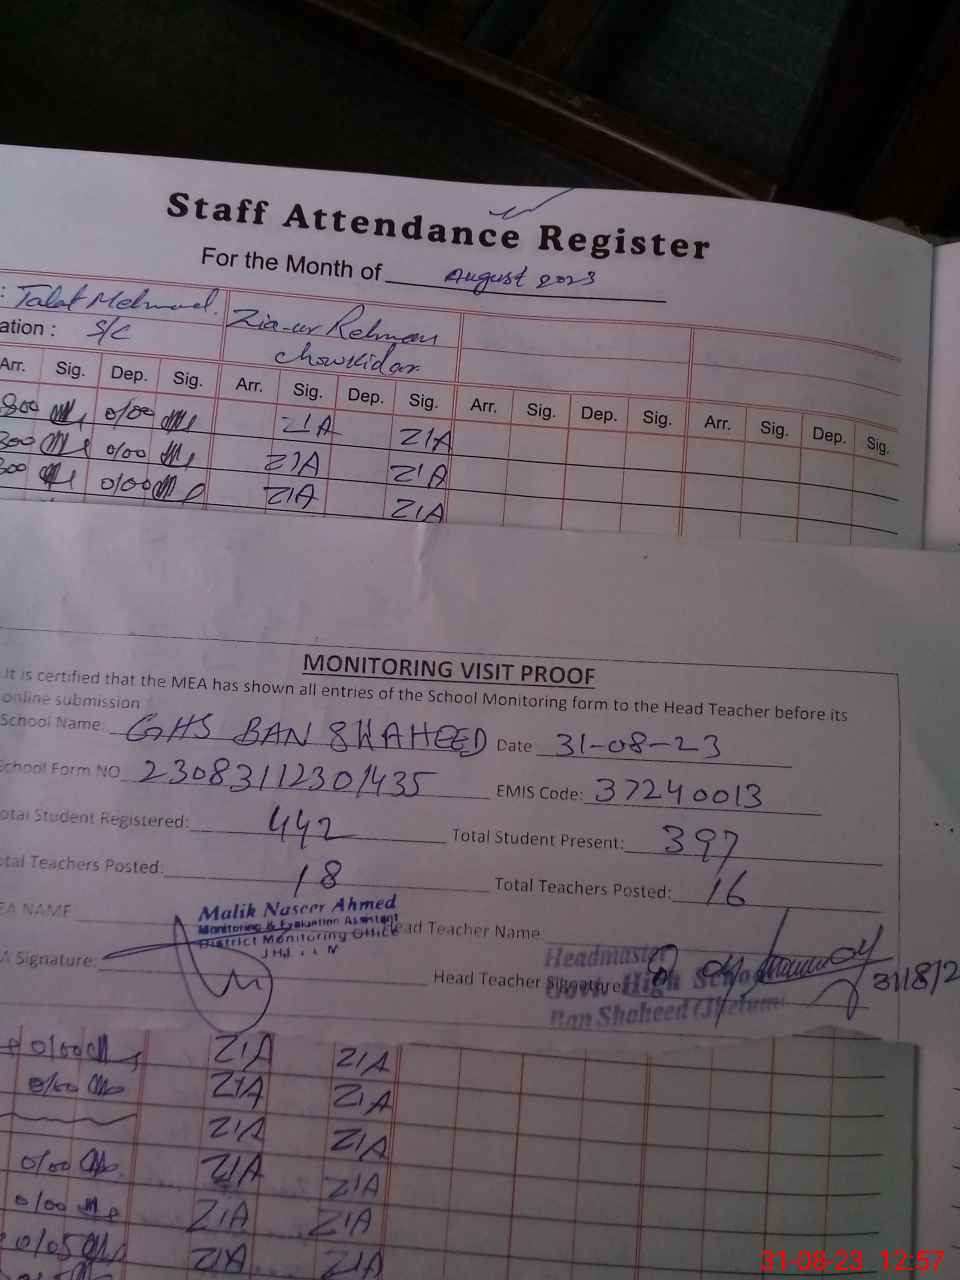 Staff Attendance Register
For the Month of August 2023
: Talat Mehmood. Zia-ur Rehman
ation : S/C Chowkidar
Arr. Sig. Dep. Sig. Arr. Sig. Dep. Sig. Arr. Sig. Dep. Sig. Arr. Sig. Dep. Sig.
800 0/00 ZIA ZIA
800 0/00 ZIA ZIA
800 0/00 ZIA ZIA
MONITORING VISIT PROOF
It is certified that the MEA has shown all entries of the School Monitoring form to the Head Teacher before its
online submission
School Name: GHS BAN SHAHEED Date 31-08-23
School Form NO 23083112301435 EMIS Code: 37240013
otal Student Registered: 442 Total Student Present: 397
otal Teachers Posted: 18 Total Teachers Posted: 16
EA NAME Malik Naseer Ahmed Head Teacher Name:
Monitoring & Evaluation Assistant
District Monitoring Office
Headmaster
A Signature: Head Teacher Signature 31/8/2
Govt. High School
Ban Shaheed (Jhelum)
0/00 ZIA ZIA
0/00 ZIA ZIA
ZIA ZIA
0/00 ZIA ZIA
0/00 ZIA ZIA
0/05 ZIA ZIA
31-08-23 12:57